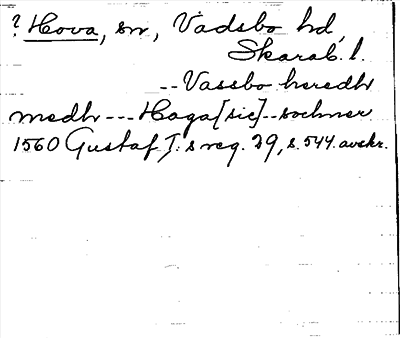 ? Hova, sn, Vadsbo hd,
Skarab. l.
-- Vassbo heredh
medh --- Haga [sic] -- sochner
1560 Gustaf I:s reg. 29, s. 544. avskr.